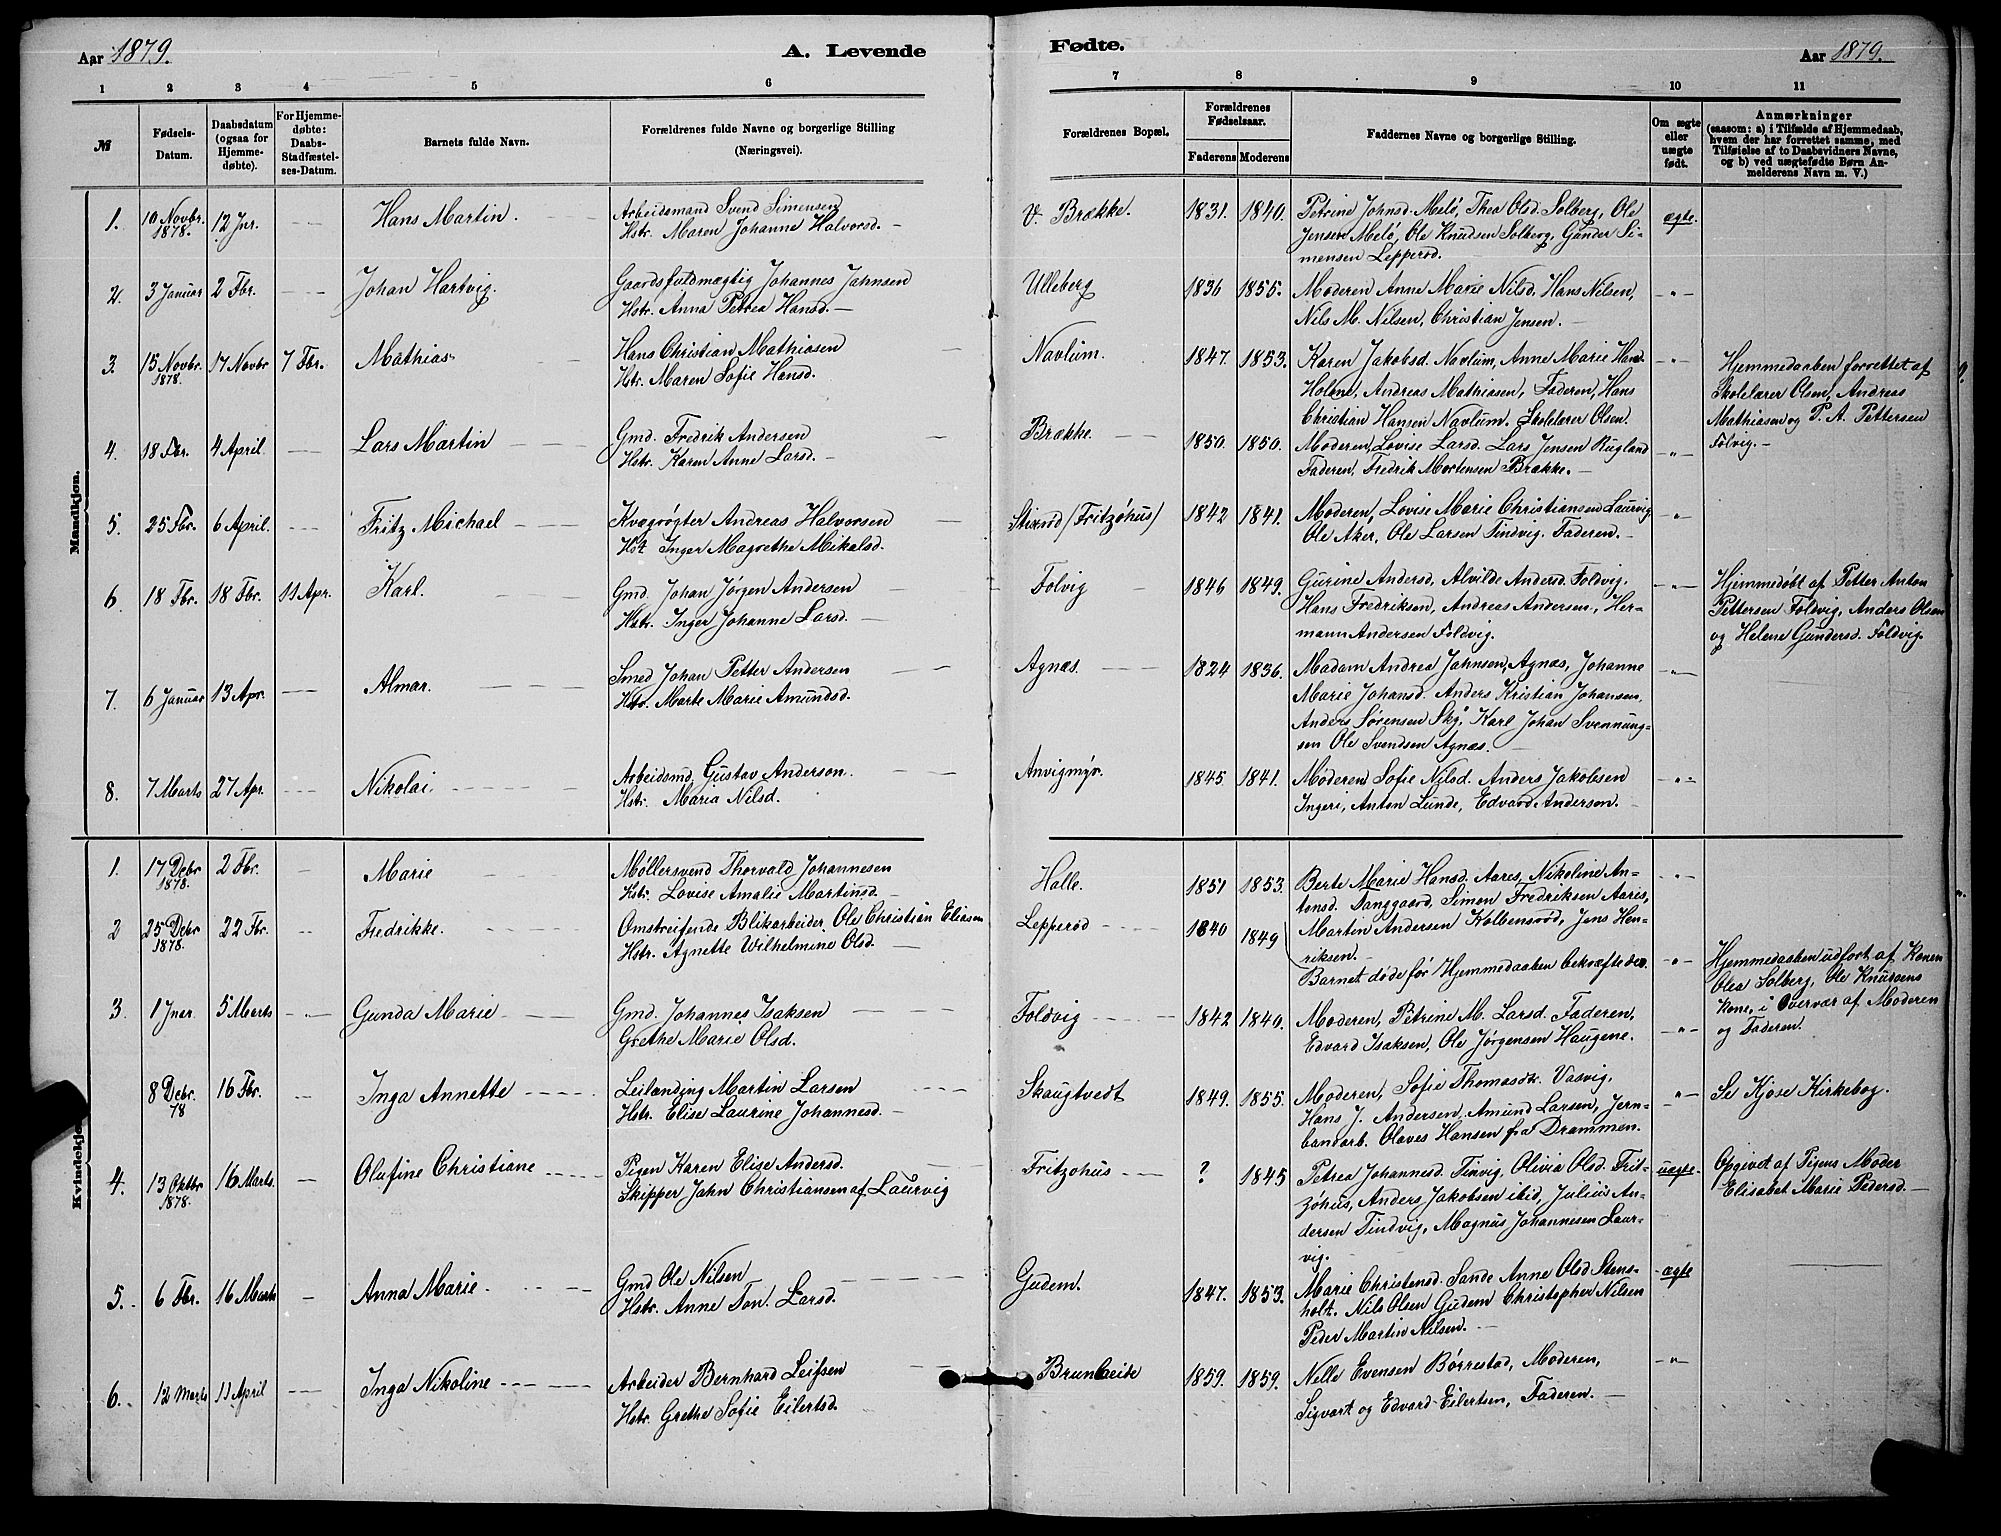 Aar 1879.
A. Levende
Fødte.
Aar 1879.
1 2 3 4 5 6 7 8 9 10 11
№
Fødsels-
Datum.
Daabsdatum
(ogsaa for
Hjemme-
døbte).
For Hjemme-
døbte:
Daabs-
Stadfæstel-
ses-Datum.
Barnets fulde Navn.
Forældrenes fulde Navne og borgerlige Stilling
(Næringsvei).
Forældrenes Bopæl.
Forældrenes
Fødselsaar.
Faderens Moderens
Faddernes Navne og borgerlige Stilling.
Om ægte
eller
uægte
født.
Anmærkninger
(saasom: a) i Tilfælde af Hjemmedaab,
hvem der har forrettet samme, med
Tilføielse af to Daabsvidners Navne,
og b) ved uægtefødte Børn An-
melderens Navn m. V.)
Mandkjøn.
1. 10 Novbr. 1878. 12 Jnr. Hans Martin.
Arbeidsmand Svend Simensen
Hstr. Maren Johanne Halvorsd.
V. Brække. 1831. 1840.
Petrine Johnsd. Melö, Thea Olsd. Solberg, Ole
Jensen Melö, Ole Knudsen Solberg, Gunder Si-
mensen Lepperöd.
ægte.
2. 3 Januar 2 Fbr. Johan Hartvig.
Gaardsfuldmægtig Johannes Jahnsen
Hstr. Anna Petrea Hansd.
Ulleberg 1836 1855.
Moderen Anne Marie Nilsd. Hans Nilsen,
Nils M. Nilsen, Christian Jensen.
"
3. 15 Novbr. 1878. 17 Novbr 7 Fbr. Mathias
Hans Christian Mathiasen
Hstr. Maren Sofie Hansd.
Navlum. 1847. 1853.
Karen Jakobsd. Navlum, Anne Marie Hansd.
Holene, Andreas Mathiasen, Faderen, Hans
Christian Hansen Navlum. Skolelærer Olsen.
"
Hjemmedaaben forrettet af
Skolelærer Olsen, Andreas
Mathiasen og P. A. Pettersen
Folvig.
4. 18 Fbr. 4 April. Lars Martin
Gmd. Fredrik Andersen
Hstr. Karen Anne Larsd.
Brække. 1850. 1850.
Moderen, Lovise Larsd. Lars Jensen Rugland
Faderen, Fredrik Mortensen Brække.
"
5. 25 Fbr. 6 April. Fritz Michael
Kvægrögter Andreas Halvorsen
Hst. Inger Magrethe Mikalsd.
(Fritzöhus) 1842 1841.
Moderen, Lovise Marie Christiansen Laurvig
Ole Aker, Ole Larsen Tindvig. Faderen.
"
6. 18 Fbr. 18 Fbr. 11 Apr. Karl.
Gmd. Johan Jörgen Andersen
Hstr. Inger Johanne Larsd.
Folvig 1846 1849.
Gurine Andersd, Alvilde Andersd. Foldvig.
Hans Fredriksen, Andreas Andersen, Her-
mann Andersen Foldvig.
"
Hjemmedöbt af Petter Anton
Pettersen Foldvig, Anders Olsen
og Helene Gundersd. Foldvig.
7. 6 Januar 13 Apr. Almar.
Smed Johan Petter Andersen
Hst. Marte Marie Amundsd.
Agnæs. 1824 1836.
Madam Andrea Jahnsen, Agnæs, Johanne
Marie Johansd. Anders Kristian Johansen,
Anders Sörensen Sky, Karl Johan Svennung-
sen Ole Svendsen Agnæs.
"
8. 7 Marts 27 Apr. Nikolai
Arbeidsmd. Gustav Anderson.
Hstr. Maria Nilsd.
Anvigmÿr. 1845 1841.
Moderen Sofie Nilsd. Anders Jakobsen
Ingeri, Anton Lunde, Edvard Anderson.
"
Kvindekjøn.
1. 17 Debr 1878. 2 Fbr. Marie
Möllersvend Thorvald Johannesen
Hstr. Lovise Amalie Martinsd.
Halle. 1851 1853.
Berte Marie Hansd. Aares, Nikoline An-
tonsd. Danggaard, Simon Fredriksen Aares,
Martin Andersen Kolbensröd, Jens Hen-
riksen.
"
2 25 Debr 1878. 22 Fbr. Fredrikke.
Omstreifende Blikarbeider Ole Christian Eliasen
Hstr. Agnette Wilhelmine Olsd.
Lepperöd 1840 1849
Barnet døde før Hjemmedaaben bekræftedes.
"
Hjemmedaaben udfört af Konen
Olea Solberg, Ole Knudsens
Kone, i Overvær af Moderen
og Faderen.
3 1 Jnar. 5 Marts Gunda Marie
Gmd. Johannes Isaksen
Grethe Marie Olsd.
Foldvig 1842 1840.
Moderen, Petrine M. Larsd. Faderen,
Edvard Isaksen, Ole Jörgensen Haugene.
"
8 Debr. 78 16 Fbr. Inga Annette
Leilænding Martin Larsen
Hstr. Elise Laurine Johannesd.
Skaugtvedt 1849. 1855.
Moderen, Sofie Thomasdtr. Vasvig,
Hans J. Andersen, Amund Larsen, Jern-
banearb. Olaves Hansen fra Drammen.
"
Se Kjose Kirkebog.
4. 13 Oktbr 1878. 16 Marts. Olufine Christiane
Pigen Karen Elise Andersd.
Skipper Jahn Christiansen af Laurvig
Fritzöhus ? 1845
Petrea Johannesd. Tinvig, Olivia Olsd. Frit-
zöhus, Anders Jakobsen ibid, Julius An-
dersen Tindvig, Magnus Johannesen Laur-
vig.
uægte.
Opgivet af Pigens Moder
Elisabet Marie Pedersd.
5. 6 Fbr. 16 Marts Anna Marie
Gmd Ole Nilsen
Hstr. Anne Ton. Larsd.
Gudem. 1847. 1853.
Marie Christensd. Sande Anne Olsd Stens-
holt. Nils Olsen Gudem Christopher Nilsen
Peder Martin Nilsen.
ægte
6. 12 Marts 11 April Inga Nikoline
Arbeider Bernhard Leifsen
Hstr. Grethe Sofie Eilertsd.
Brunbeite 1859. 1859.
Nelle Evensen Börrestad, Moderen,
Sigvart og Edvard Eilertsen, Faderen.
"